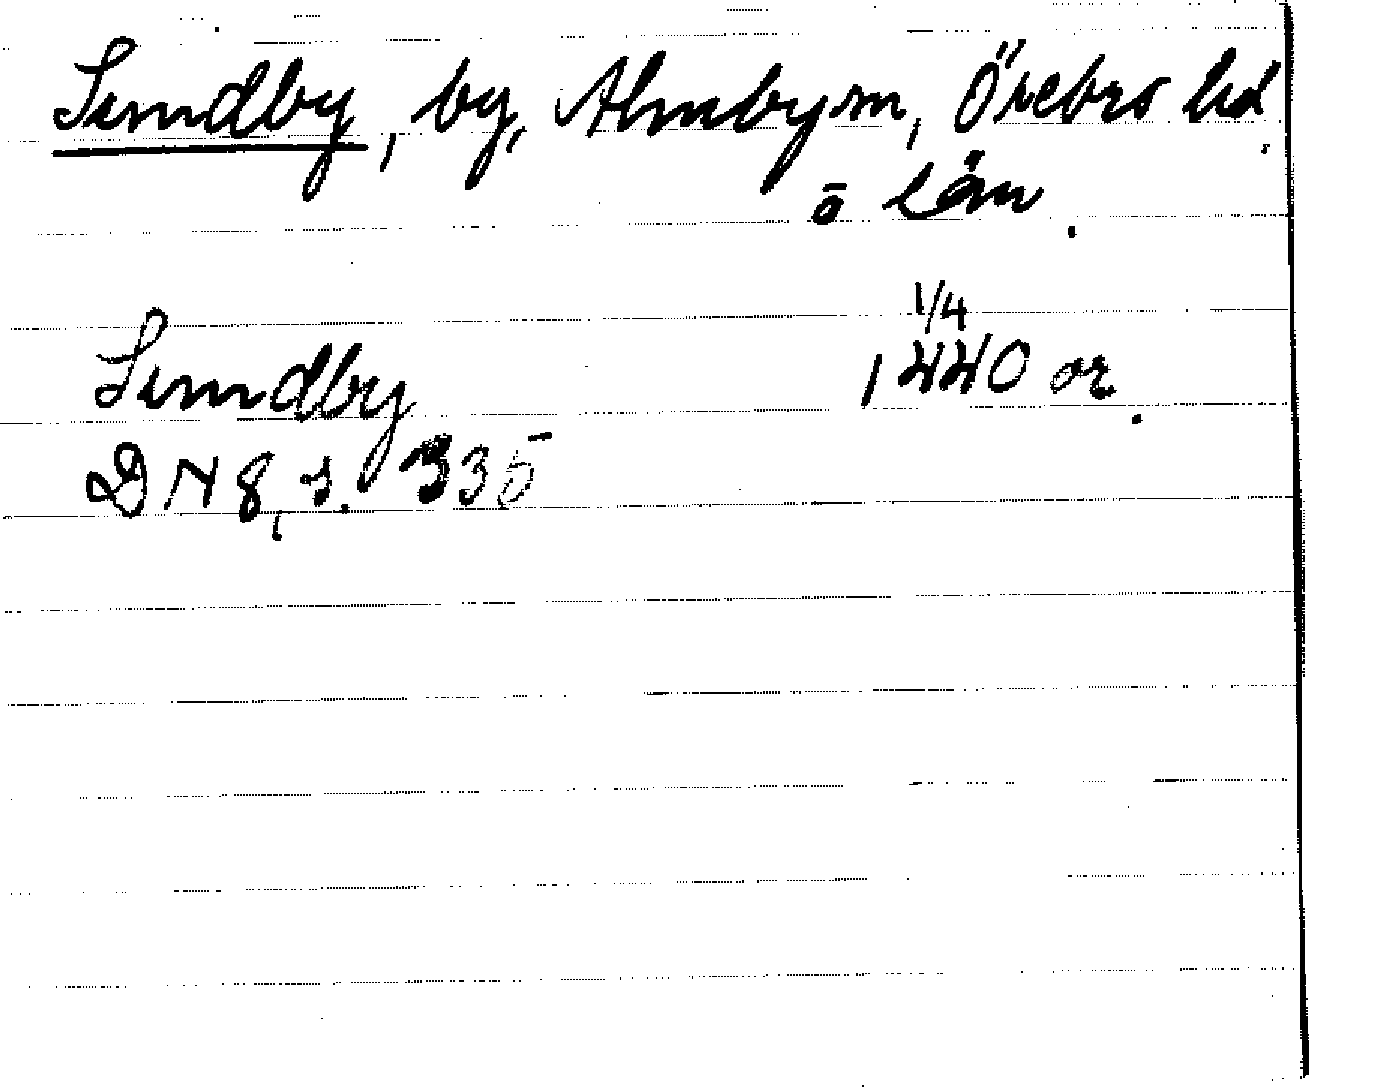 Sundby, by, Almby sn, Örebro hd,
ö län.
Sundby 1/4 1440 or.
DN 8, s. 335